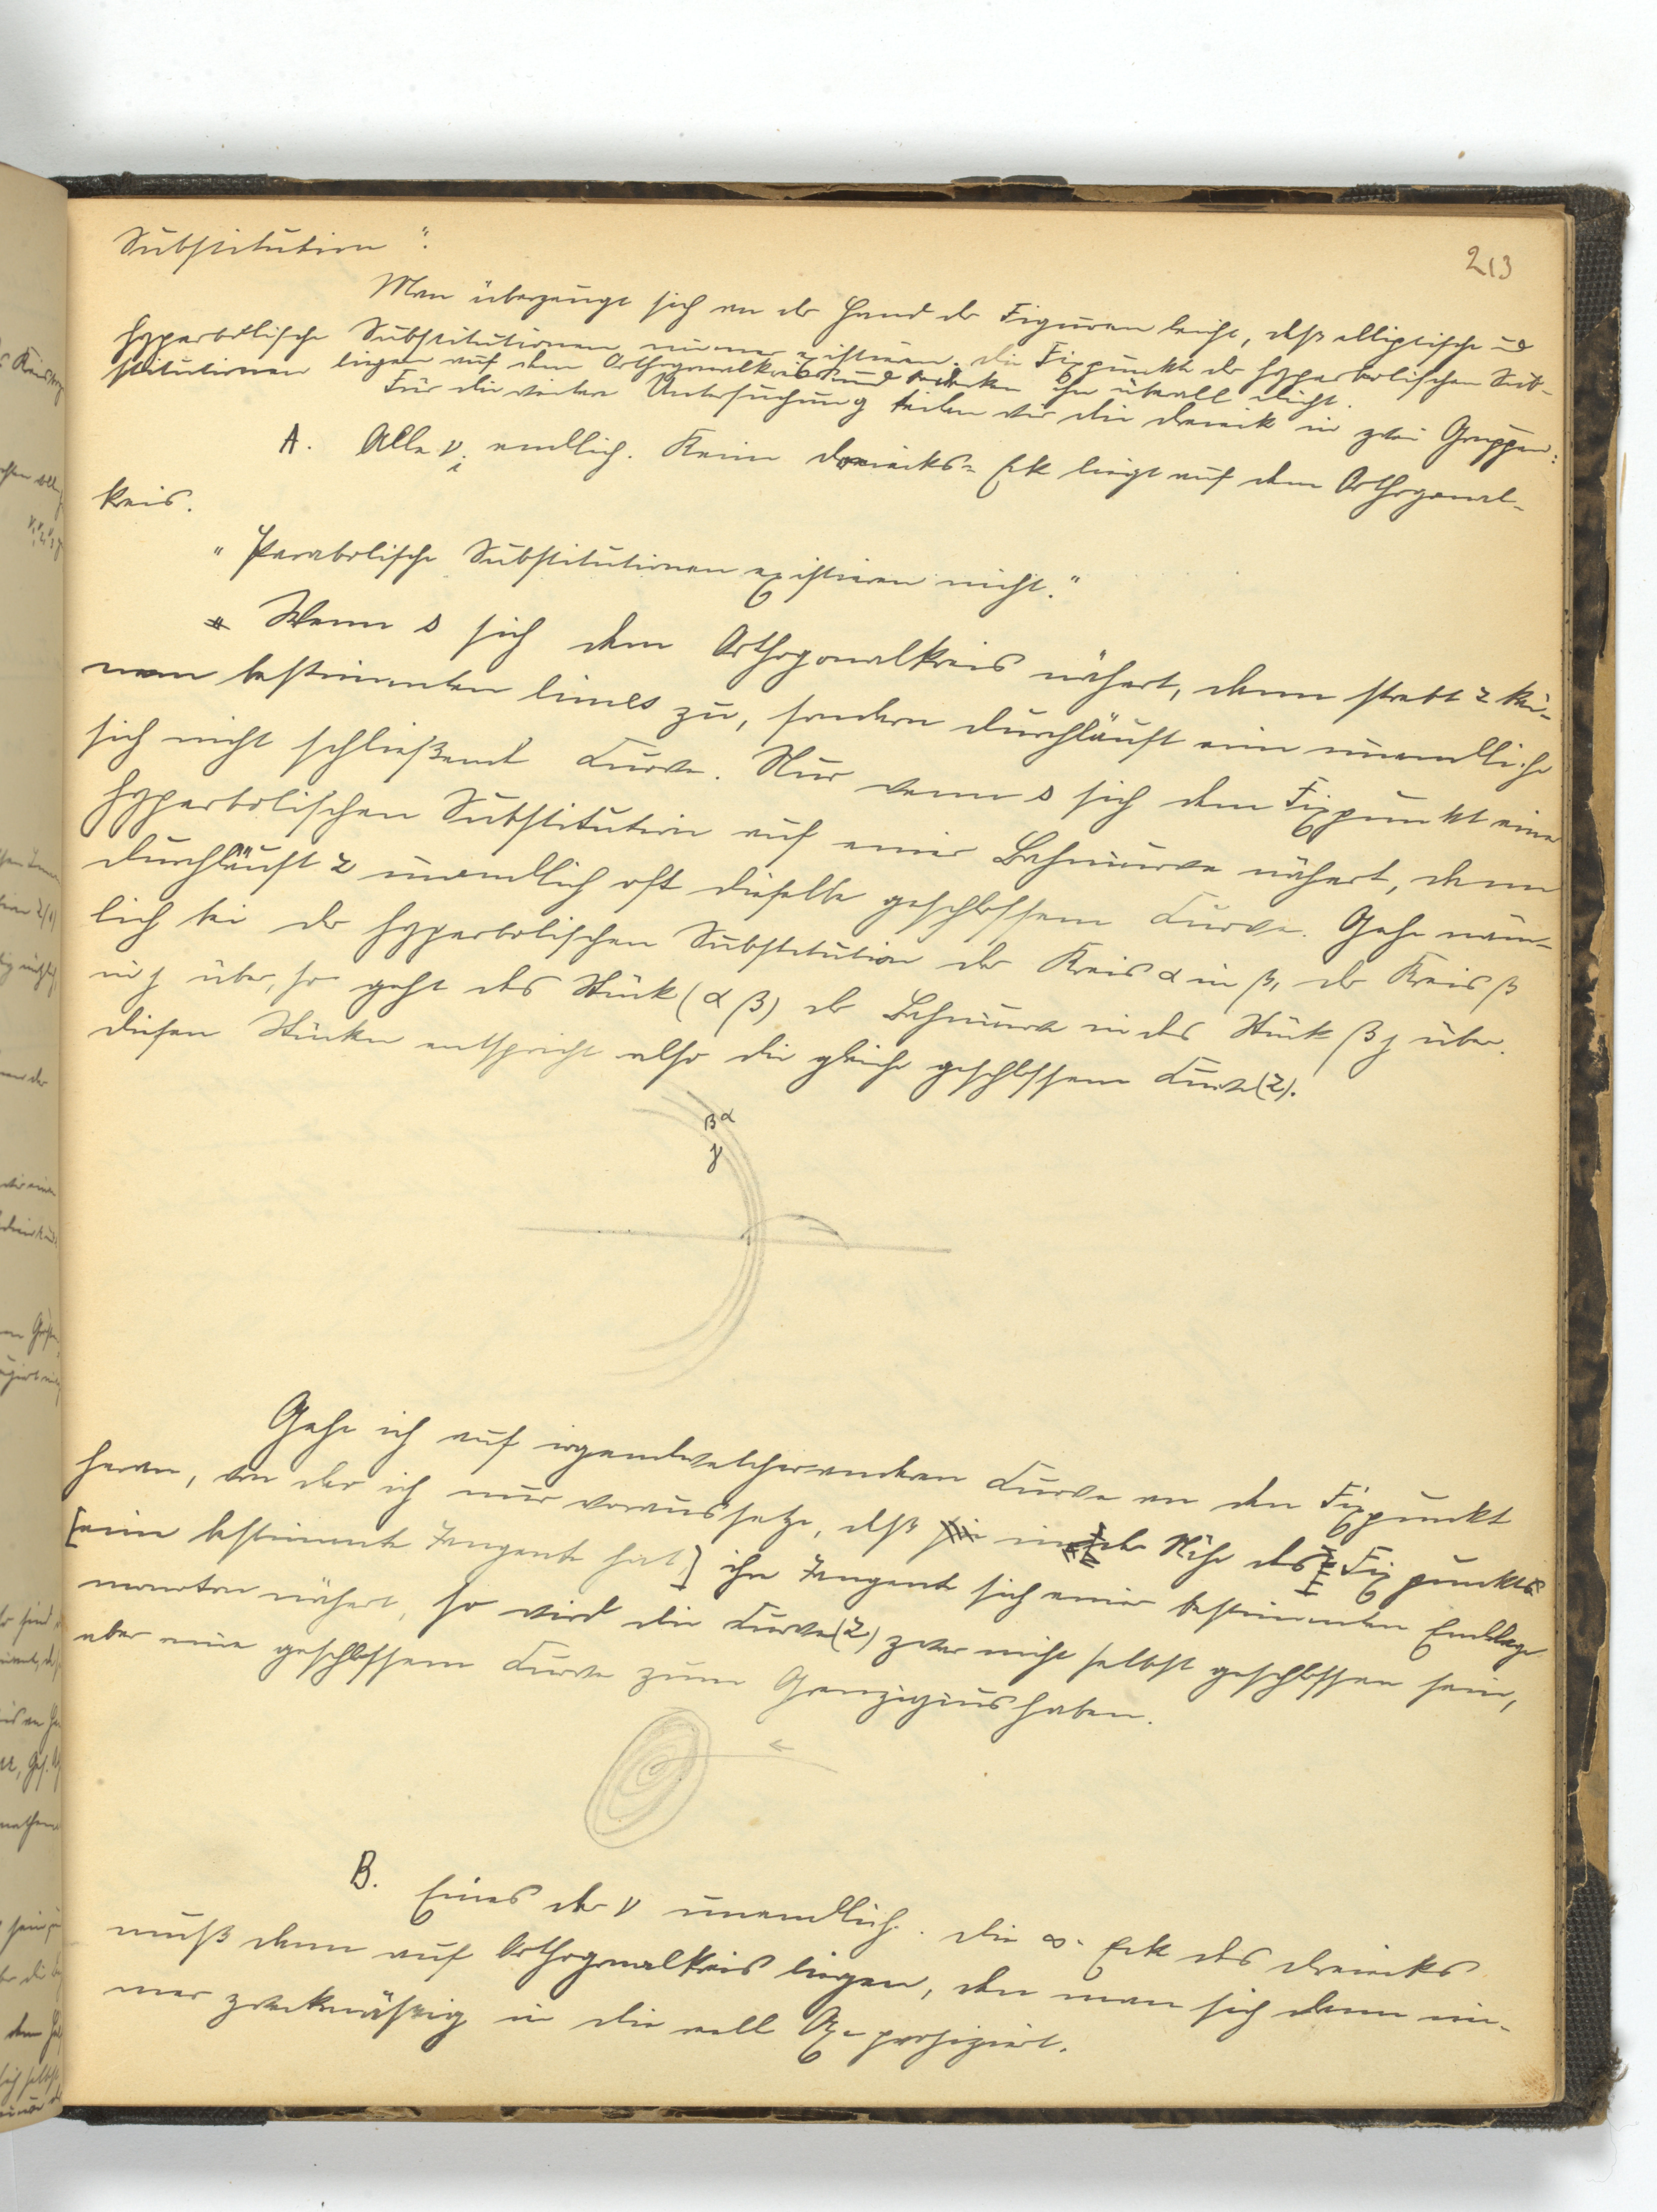 213
Substitution".
Man überzeugt sich an der Hand der Figuren leicht, daß elliptische und
hyperbolische Substitutionen immer existieren. die Fixpunkte der hyperbolischen Sub-
stitutionen liegen auf dem Orthogonalkreis und bedecken ihn überall dicht.
Für die weitere Untersuchung teilen wir die dreiecke in zwei Gruppen:
A. Alle ν_i endlich. Keine dreiecks-Ecke liegt auf dem Orthogonal-
kreis.
"Parabolische Substitutionen existieren nicht."
Wenn s sich dem Orthogonalkreis nähert, dann strebt z kei-
nem bestimmten limes zu, sondern durchläuft eine unendliche
sich nicht schließende Curve. Nur wenn s sich dem Fixpunkt einer
hyperbolischen Substitution auf einer Bahncurve nähert, dann
durchläuft z unendlich oft dieselbe geschlossene Curve. Gehe näm-
lich bei der hyperbolischen Substitution der Kreis α in β, der Kreis β
in γ über, so geht das Stück (α β) der Bahncurve in das Stück β γ über.
diesen Stücken entspricht also die gleiche geschlossene Curve (z).
β α
γ
Gehe ich auf irgendwelcher anderen Curve an den Fixpunkt
heran, von der ich nur voraussetze, daß in der Nähe des Fixpunktes
[eine bestimmte Tangente hat] ihre Tangente sich einer bestimmten Endlage
monoton nähert, so wird die Curve (z) zwar nicht selbst geschlossen sein,
aber eine geschlossene Curve zum Grenzzyclus haben.
B. Eines der ν unendlich. die ∞-Ecke des dreiecks
muß dann auf Orthogonalkreis liegen, den man sich dann im-
mer zweckmäßig in die reelle Axe projiziert.